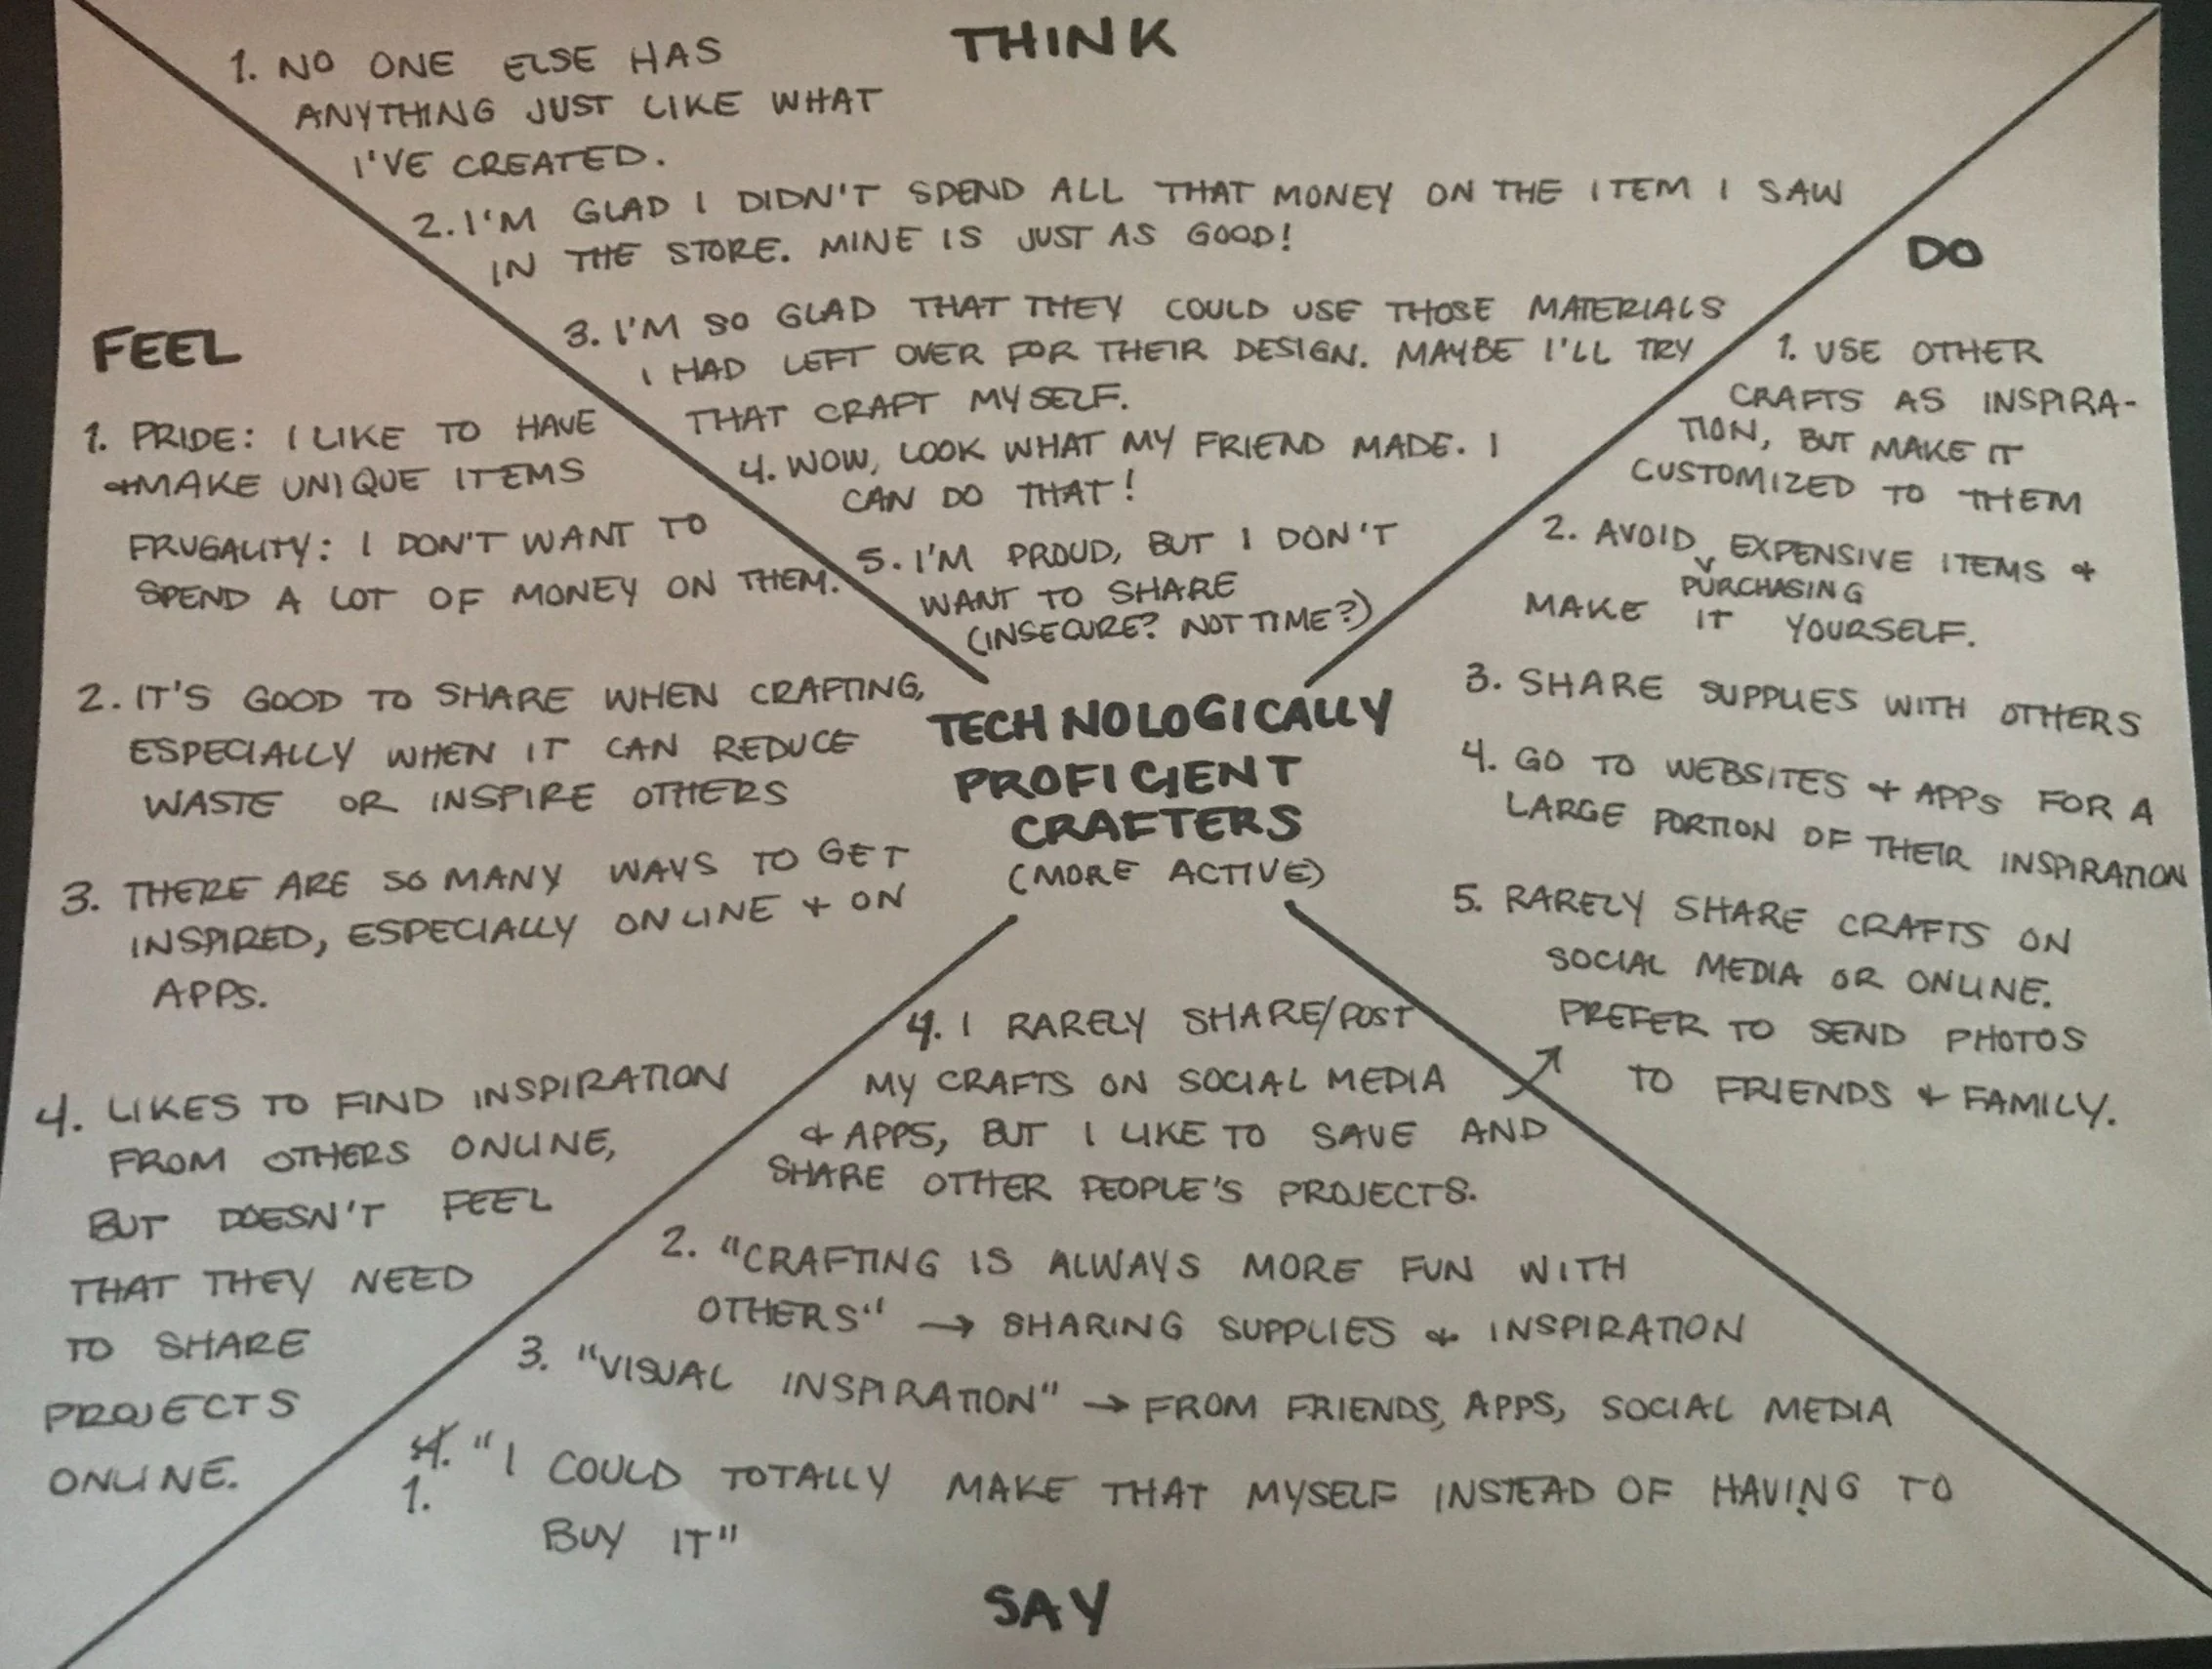 THINK
1. NO ONE ELSE HAS
ANYTHING JUST LIKE WHAT
I'VE CREATED.
2. I'M GLAD I DIDN'T SPEND ALL THAT MONEY ON THE ITEM I SAW
IN THE STORE. MINE IS JUST AS GOOD!
3. I'M SO GLAD THAT THEY COULD USE THOSE MATERIALS
I HAD LEFT OVER FOR THEIR DESIGN. MAYBE I'LL TRY
THAT CRAFT MYSELF.
4. WOW, LOOK WHAT MY FRIEND MADE. I
CAN DO THAT!
5. I'M PROUD, BUT I DON'T
WANT TO SHARE
(INSECURE? NOT TIME?)
FEEL
1. PRIDE: I LIKE TO HAVE
+MAKE UNIQUE ITEMS
FRUGALITY: I DON'T WANT TO
SPEND A LOT OF MONEY ON THEM.
2. IT'S GOOD TO SHARE WHEN CRAFTING,
ESPECIALLY WHEN IT CAN REDUCE
WASTE OR INSPIRE OTHERS
3. THERE ARE SO MANY WAYS TO GET
INSPIRED, ESPECIALLY ONLINE + ON
APPS.
4. LIKES TO FIND INSPIRATION
FROM OTHERS ONLINE,
BUT DOESN'T FEEL
THAT THEY NEED
TO SHARE
PROJECTS
ONLINE.
TECHNOLOGICALLY
PROFICIENT
CRAFTERS
(MORE ACTIVE)
DO
1. USE OTHER
CRAFTS AS INSPIRA-
TION, BUT MAKE IT
CUSTOMIZED TO THEM
2. AVOID EXPENSIVE ITEMS +
PURCHASING
MAKE IT YOURSELF.
3. SHARE SUPPLIES WITH OTHERS
4. GO TO WEBSITES + APPS FOR A
LARGE PORTION OF THEIR INSPIRATION
5. RARELY SHARE CRAFTS ON
SOCIAL MEDIA OR ONLINE.
PREFER TO SEND PHOTOS
TO FRIENDS + FAMILY.
4. I RARELY SHARE/POST
MY CRAFTS ON SOCIAL MEDIA
+ APPS, BUT I LIKE TO SAVE AND
SHARE OTHER PEOPLE'S PROJECTS.
2. "CRAFTING IS ALWAYS MORE FUN WITH
OTHERS" → SHARING SUPPLIES + INSPIRATION
3. "VISUAL INSPIRATION" → FROM FRIENDS, APPS, SOCIAL MEDIA
4. "I COULD TOTALLY MAKE THAT MYSELF INSTEAD OF HAVING TO
1.
BUY IT"
SAY